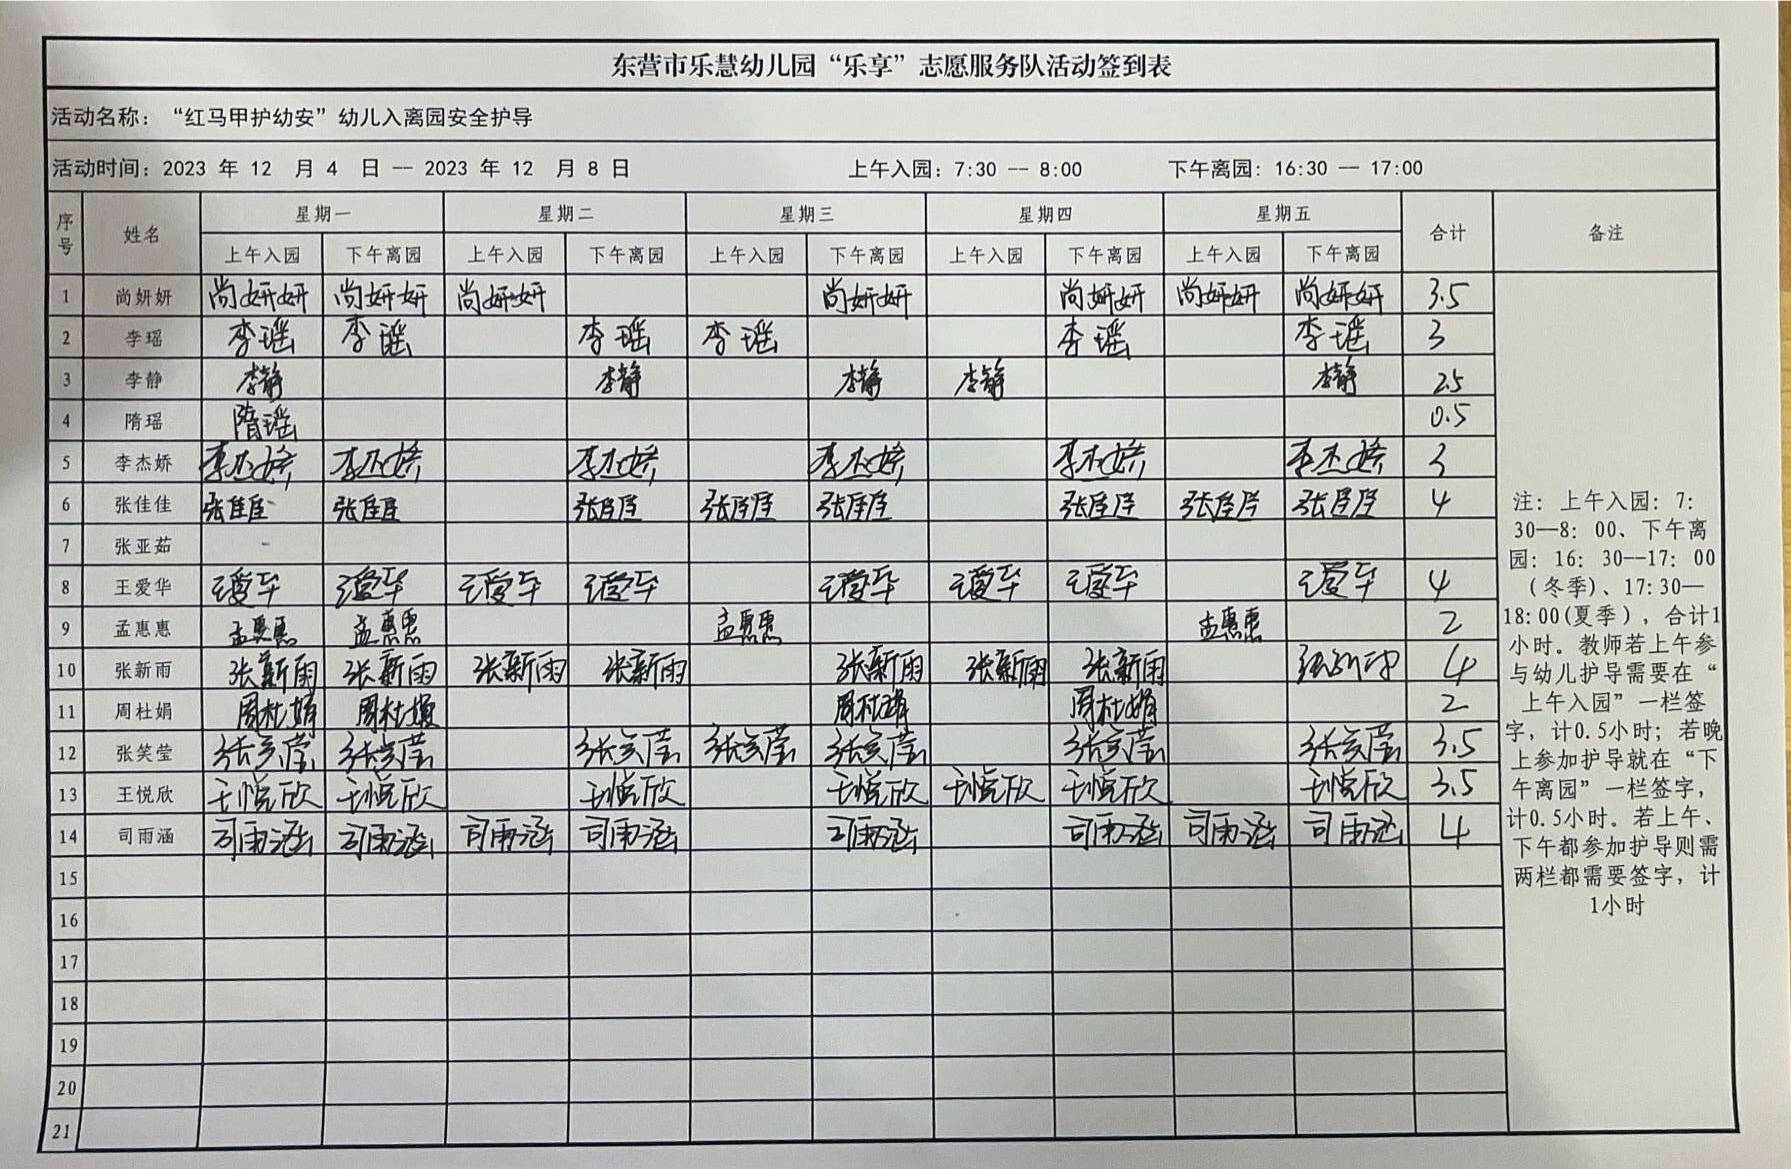 东营市乐慧幼儿园“乐享”志愿服务队活动签到表
活动名称：“红马甲护幼安”幼儿入离园安全护导
活动时间：2023 年 12 月 4 日 — 2023 年 12 月 8 日 上午入园：7:30 — 8:00 下午离园：16:30 — 17:00
序号 姓名 星期一 星期二 星期三 星期四 星期五 合计 备注
上午入园 下午离园 上午入园 下午离园 上午入园 下午离园 上午入园 下午离园 上午入园 下午离园
1 尚妍妍 尚妍妍 尚妍妍 尚妍妍 尚妍妍 尚妍妍 尚妍妍 尚妍妍 3.5
2 李瑶 李瑶 李瑶 李瑶 李瑶 李瑶 李瑶 3
3 李静 李静 李静 李静 李静 李静 2.5
4 隋瑶 隋瑶 0.5
5 李杰娇 李杰娇 李杰娇 李杰娇 李杰娇 李杰娇 李杰娇 3
6 张佳佳 张佳佳 张佳佳 张佳佳 张佳佳 张佳佳 张佳佳 张佳佳 张佳佳 4
7 张亚茹
8 王爱华 王爱华 王爱华 王爱华 王爱华 王爱华 王爱华 王爱华 王爱华 4
9 孟惠惠 孟惠惠 孟惠惠 孟惠惠 孟惠惠 2
10 张新雨 张新雨 张新雨 张新雨 张新雨 张新雨 张新雨 张新雨 张新雨 4
11 周杜娟 周杜娟 周杜娟 周杜娟 周杜娟 2
12 张笑莹 张笑莹 张笑莹 张笑莹 张笑莹 张笑莹 张笑莹 张笑莹 3.5
13 王悦欣 王悦欣 王悦欣 王悦欣 王悦欣 王悦欣 王悦欣 王悦欣 3.5
14 司雨涵 司雨涵 司雨涵 司雨涵 司雨涵 司雨涵 司雨涵 司雨涵 司雨涵 4
15
16
17
18
19
20
21
注：上午入园：7:
30—8：00、下午离
园：16：30—17：00
（冬季）、17:30—
18:00(夏季），合计1
小时。教师若上午参
与幼儿护导需要在“
上午入园”一栏签
字，计0.5小时；若晚
上参加护导就在“下
午离园”一栏签字，
计0.5小时。若上午、
下午都参加护导则需
两栏都需要签字，计
1小时